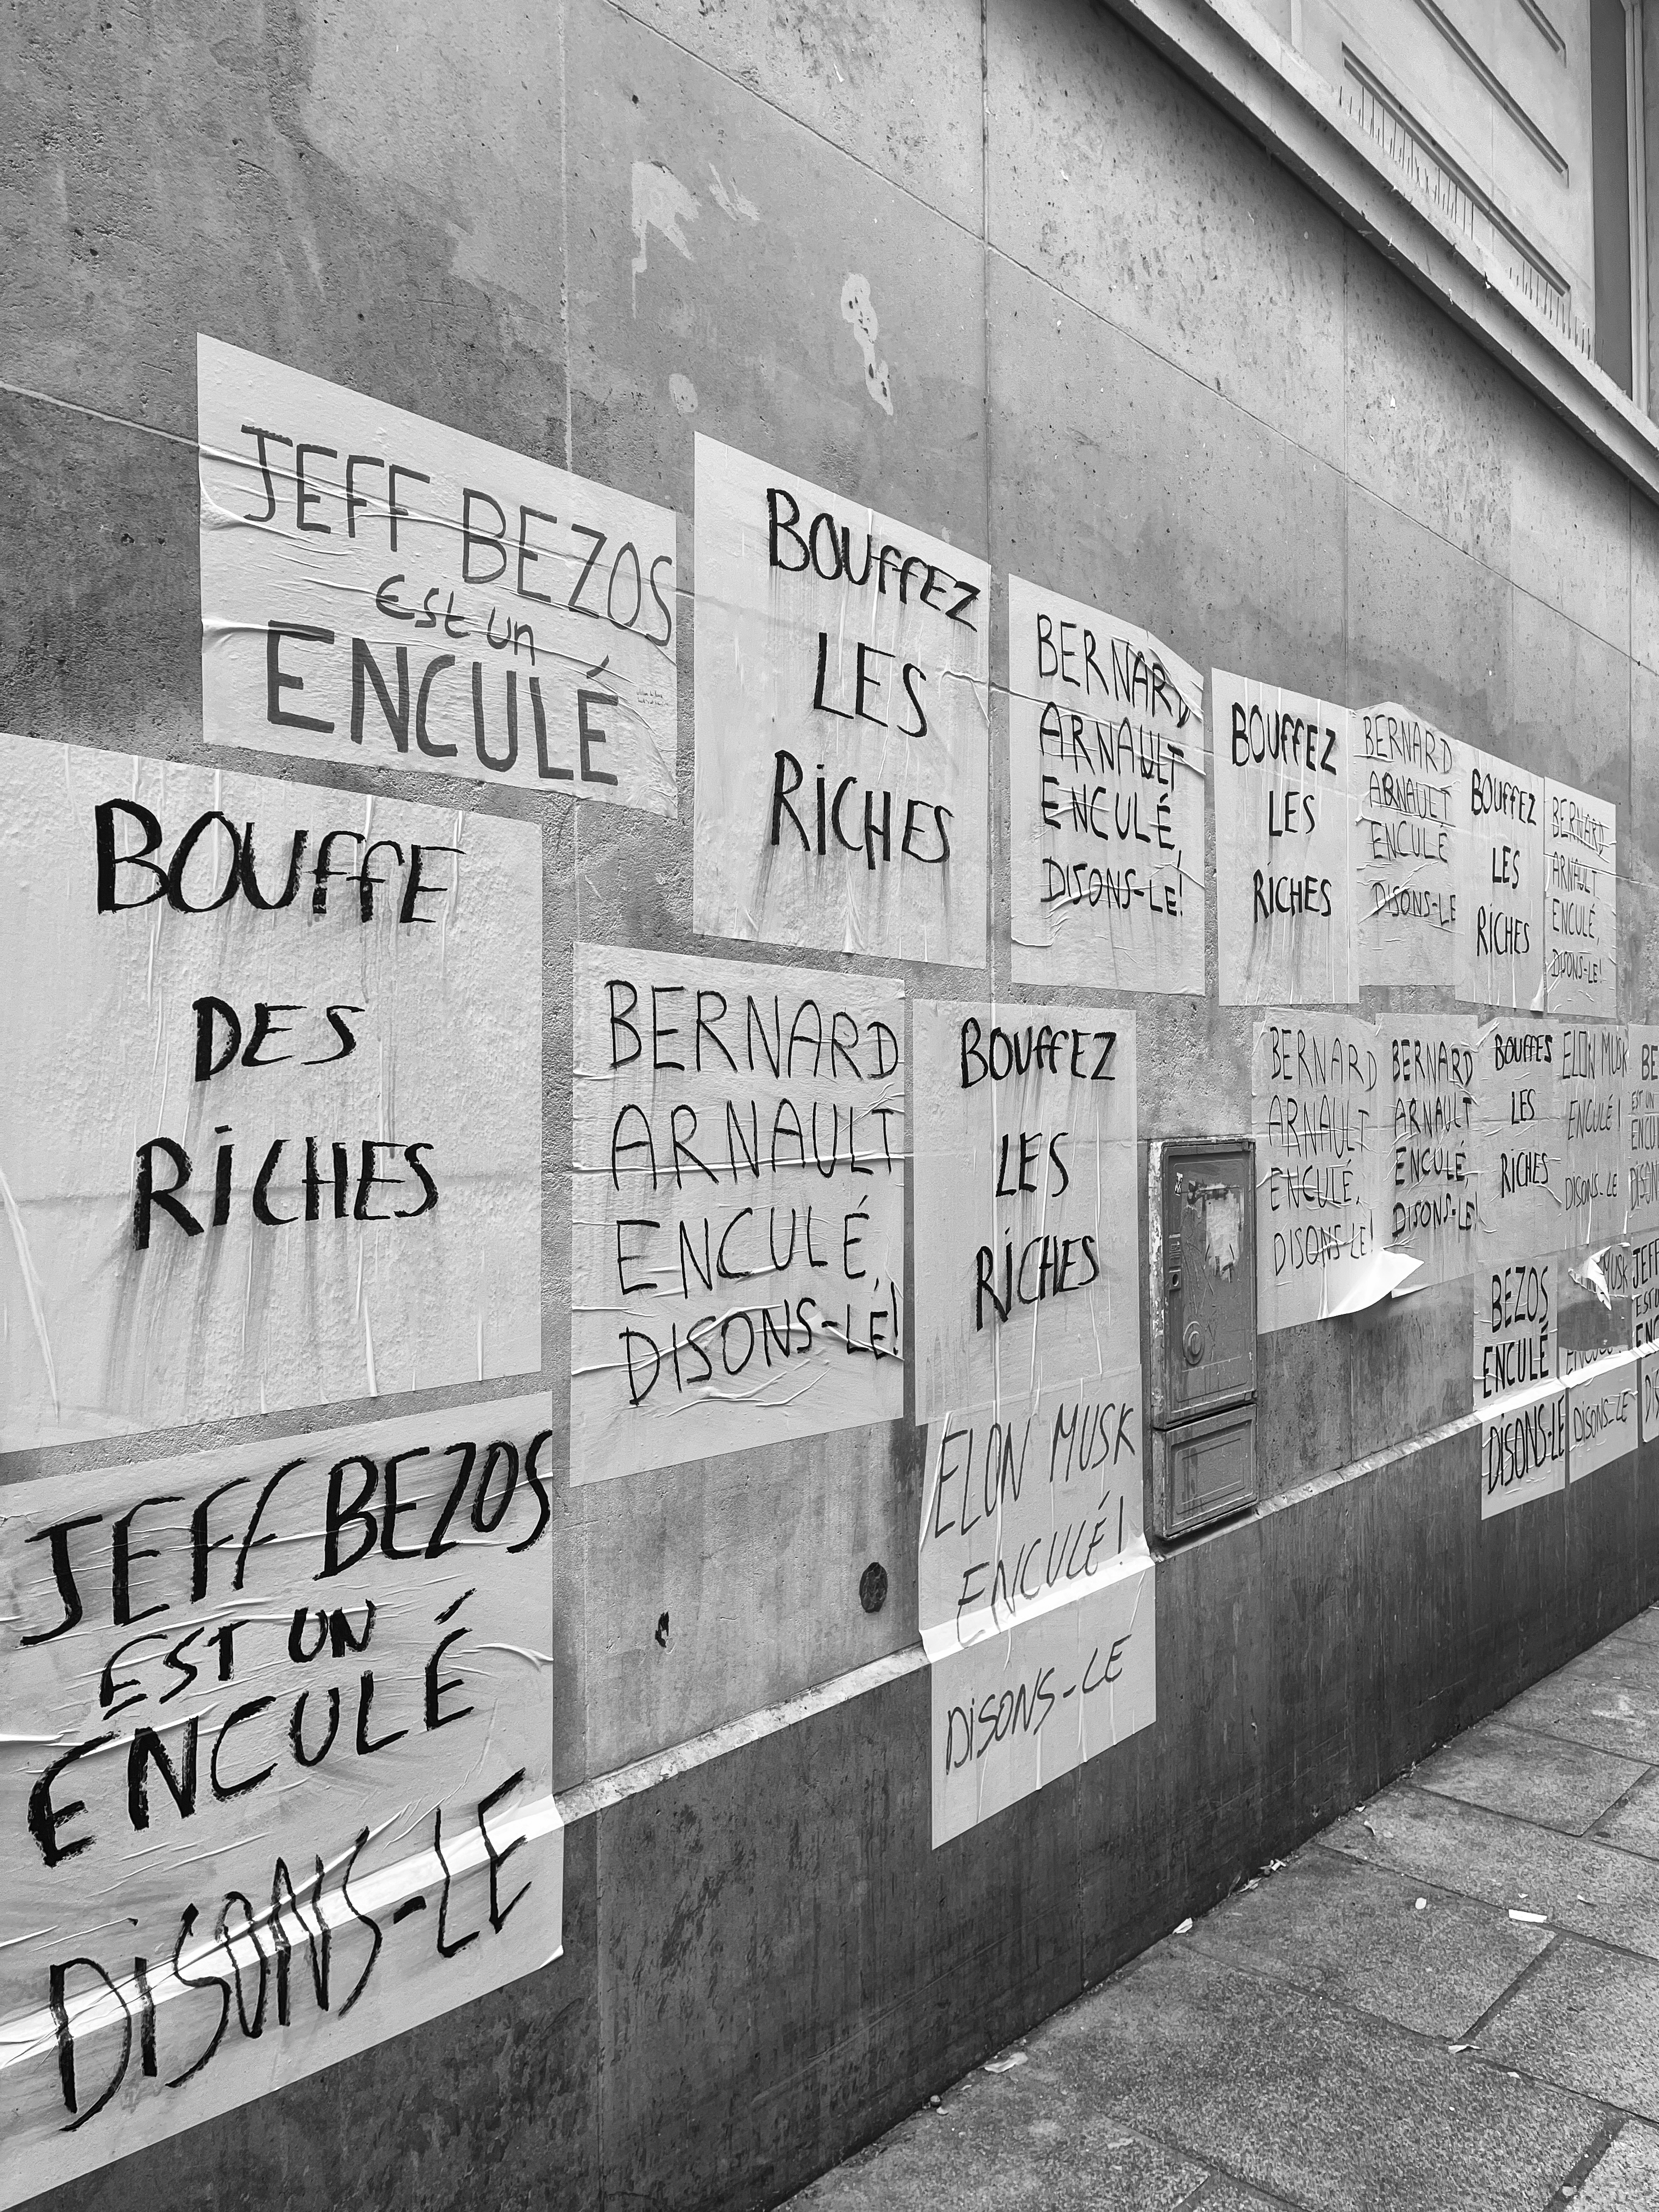 JEFF BEZOS
EST UN
ENCULÉ
BOUFFEZ
LES
RICHES
BERNARD
ARNAULT
ENCULÉ,
DISONS-LE!
BOUFFEZ
LES
RICHES
BERNARD
ARNAULT
ENCULÉ
DISONS-LE
BOUFFEZ
LES
RICHES
BERNARD
ARNAULT
ENCULÉ,
DISONS-LE!
BOUFFE
DES
RICHES
BERNARD
ARNAULT
ENCULÉ,
DISONS-LE!
BOUFFEZ
LES
RICHES
BERNARD
ARNAULT
ENCULÉ,
DISONS-LE!
BERNARD
ARNAULT
ENCULÉ,
DISONS-LE!
BOUFFES
LES
RICHES
ELON MUSK
ENCULÉ!
DISONS-LE
BE
EST UN
ENCU
DISON
JEFF BEZOS
EST UN
ENCULÉ
DISONS-LE
ELON MUSK
ENCULÉ!
DISONS-LE
BEZOS
ENCULÉ
DISONS-LE
MUSK
DISONS-LE
JEFF
EST U
ENC
DIS